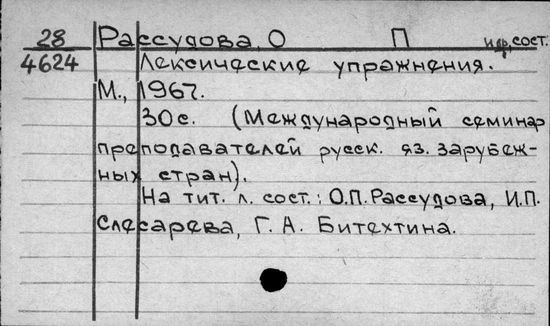 28 Рассудова, О П и др, сост.
4624 Лексические упражнения.
М., 1967.
30с. (Международный семинар
преподавателей русск. яз. зарубеж-
ных стран).
На тит. л. сост.: О.П. Рассудова, И.П.
Слесарева, Г. А. Битехтина.